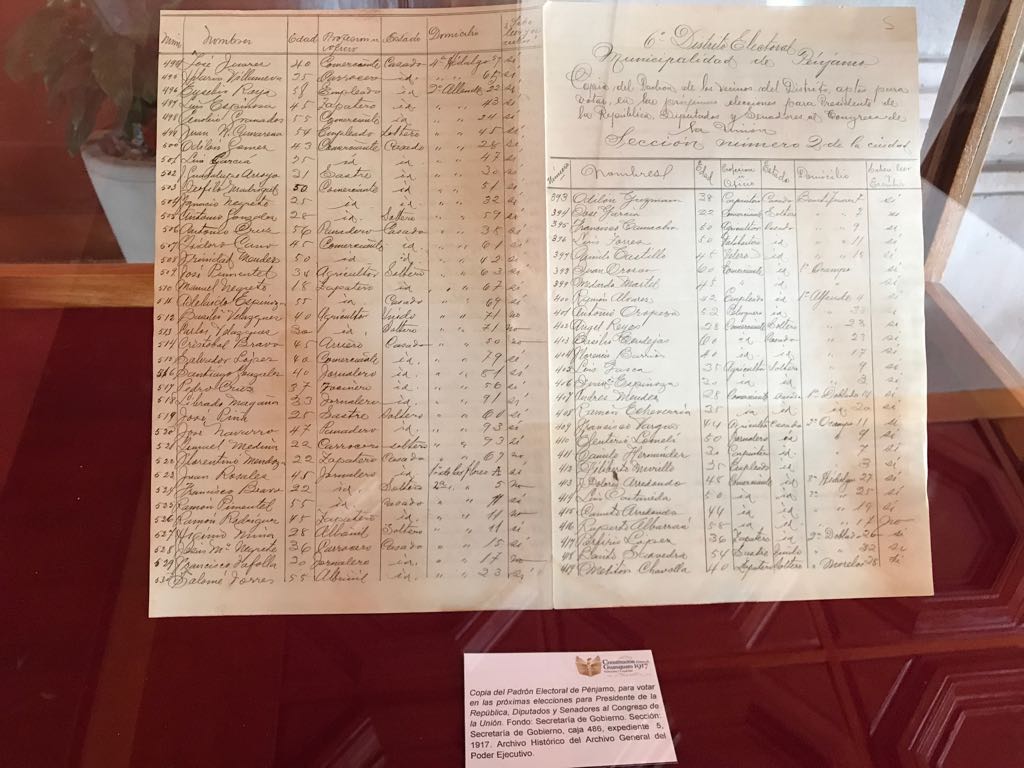 Núm Nombres Edad Profesion u oficio Estado Domicilio
494 José Juarez 40 Comerciante Casado 4ª Hidalgo 57 si
495 Villanueva 25 Carrocero id. " " 65 si
496 58 Empleado " 2ª Allende 22 si
497 Luis Espinosa 45 Zapatero id " " 43 si
498 Granados 55 Comerciante id " " 24 si
499 Juan 54 Empleado Soltero " " 45 si
500 43 Comerciante Casado " " 28 si
501 Luis García 25 id id " " 47 si
502 Arroyo 31 Sastre id " " 30 si
503 Madrigal 50 Comerciante id " " 51 si
504 Ignacio Negrete 25 id id " " 32 si
505 28 id. Soltero " " 59 si
506 Antonio Cruz 56 Panadero Casado " " 38 si
507 Isidoro Cano 45 Comerciante id. " " 61 si
508 Trinidad Mendez 50 id id " " 42 si
509 José Pimentel 34 Agricultor Soltero " " 63 si
510 Manuel Negrete 18 Zapatero id " " 67 si
511 Espinoza 55 id Casado " " 69 si
512 Velazquez 40 Agricultor Viudo " " 71 no
513 Velazquez 30 id. Soltero " " 71 no
514 Cristobal Bravo 45 Arriero Casado " " 50 no
515 Salvador López 40 Comerciante id. " " 79 si
516 Santiago Gonzalez 40 Jornalero id. " " 81 si
517 Pedro Cruz 37 id. " " 56 si
518 Librado Magaña 33 Jornalero id. " " 91 si
519 José 25 Sastre Soltero " " 60 si
520 José Navarro 47 Panadero id " " 93 si
521 Miguel Medina 22 Carrocero soltero " " 93 si
522 Florentino Mendoza 22 Zapatero Casado " " 67 no
523 Juan Rosales 45 Jornalero id si
524 Francisco Bravo 22 id. Soltero 2ª " " 5 no
525 Ramón Pimentel 55 id. Casado " " si
526 Ramon Rodriguez 45 Zapatero id " " 11 no
527 Higinio 28 Albañil Soltero " " 11 si
528 Negrete 36 Carrocero Casado " " 15 si
529 Francisco Tafolla 30 Jornalero id " " 17 no
530 Salomé Torres 55 Albañil id. " " 23 si
5
6º Distrito Electoral
Municipalidad de Pénjamo
Copia del Padrón de los vecinos del Distrito, aptos para
votar, en las próximas elecciones para Presidente de
la República, Diputados y Senadores al Congreso de
la Unión
Sección número 2, de la ciudad
Números Nombres Edad Profesion u Oficio Estado Domicilio Saben leer y Escribir
393 Odilón Guzman 38 Carpintero Casado si
394 José Garcia 22 Comerciante Soltero " " 7 si
395 Francisco Camacho 50 Agricultor Casado " " 9 si
396 Luis Torres 50 id " " 11 si
397 Camilo Castillo 45 id " " 15 si
398 Juan 60 Comerciante id 1ª Ocampo si
399 Medardo Martel 45 " id si
400 Ramón Alvarez 42 Empleado id 1ª Allende 4 si
401 Antonio Oropeza 52 id si
402 Angel Reyes 28 Comerciante Soltero " " 23 si
403 60 id Casado " " 23 si
404 40 id. id " " 17 si
405 Luis Gasca 35 Agricultor Soltero " " 9 si
406 Espinoza 30 id id " " 3 si
407 Andres Mendez 28 Comerciante Casado 1ª Doblado 14 si
408 Ramón Echeverría 25 id id " " 20 si
409 Francisco Vargas 44 Agricultor Casado 2ª Ocampo 11 si
410 Eleuterio 50 Jornalero id " " 9 si
411 Camilo Hernandez 30 Carpintero id " " 7 si
412 Filiberto Murillo 35 Empleado id " " 3 si
413 J. Dolores Arredondo 48 Comerciante id 3ª Hidalgo 27 si
414 Luis Castañeda 50 id id 2ª " 25 si
415 Camilo Arredondo 44 id id " " 15 si
416 Ruperto Albarrán 58 id id " " 17 no
417 Porfirio López 36 Zapatero id 2ª Doblado 26 si
418 Benito Saavedra 54 Sastre Viudo " " 32 si
419 Meliton Chavolla 40 Zapatero Soltero " Morelos 28 si
Constitución
Guanajuato 1917
Copia del Padrón Electoral de Pénjamo, para votar
en las próximas elecciones para Presidente de la
República, Diputados y Senadores al Congreso de
la Unión. Fondo: Secretaría de Gobierno. Sección:
Secretaría de Gobierno, caja 486, expediente 5,
1917. Archivo Histórico del Archivo General del
Poder Ejecutivo.